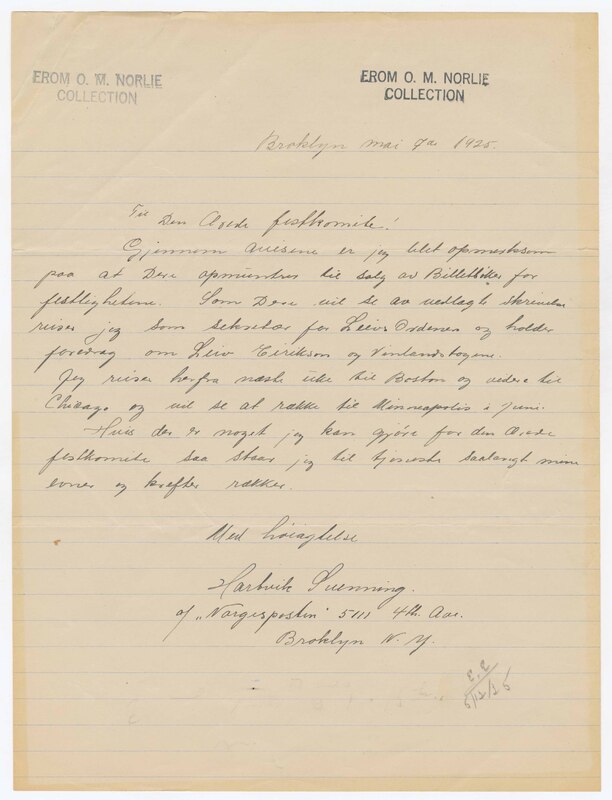 FROM O. M. NORLIE
COLLECTION
FROM O. M. NORLIE
COLLECTION
Broklyn mai 7de 1925.
Til Den Ærede festkomite!
Gjennem aviserne er jeg blit opmerksom
paa at Dere opmuntrer til salg av Billetter for
festligheterne. Som Dere vil se av vedlagte skrivelse
reiser jeg som sekretær for Leivs Ordenen og holder
foredrag om Leiv Eirikson og Vinlandstogene.
Jeg reiser herfra næste uke til Boston og videre til
Chicago og vil se at række til Minneapolis i juni.
Hvis der er noget jeg kan gjöre for den Ærede
festkomite saa staar jeg til tjeneste saalangt mine
evner og kræfter rækker.
Med höiagtelse
Hartvik Svenning.
"Norgesposten" 5111 4th Ave.
Broklyn N. Y.
5/12/25